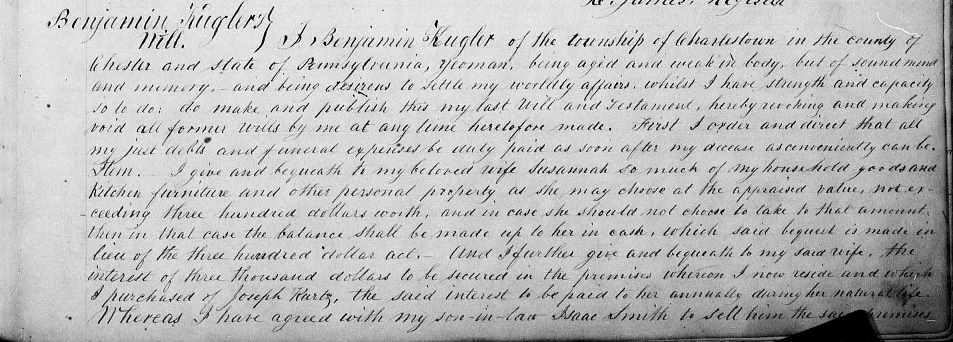 James, Register
Benjamin Kuglers
Will. } I Benjamin Kugler of the township of Charlestown in the county of
Chester and state of Pennsylvania, yeoman, being aged and weak in body, but of sound mind
and memory, - and being desirous to settle my worldly affairs, whilst I have strength and capacity
so to do; do make and publish this my last Will and Testament, hereby revoking and making
void all former wills by me at any time heretofore made. First I order and direct that all
my just debts and funeral expenses be duly paid as soon after my decease as conveniently can be.
Item. - I give and bequeath to my beloved wife Susannah so much of my household goods and
Kitchen furniture and other personal property as she may choose at the appraised value, not ex-
-ceeding three hundred dollars worth, and in case she should not choose to take to that amount,
then in that case the balance shall be made up to her in cash, which said bequest is made in
lieu of the three hundred dollar act. - And I further give and bequeath to my said wife, the
interest of three thousand dollars to be secured in the premises whereon I now reside and which
I purchased of Joseph Hartz, the said interest to be paid to her annually during her natural life.
Whereas I have agreed with my son-in-law Isaac Smith to sell him the said premises